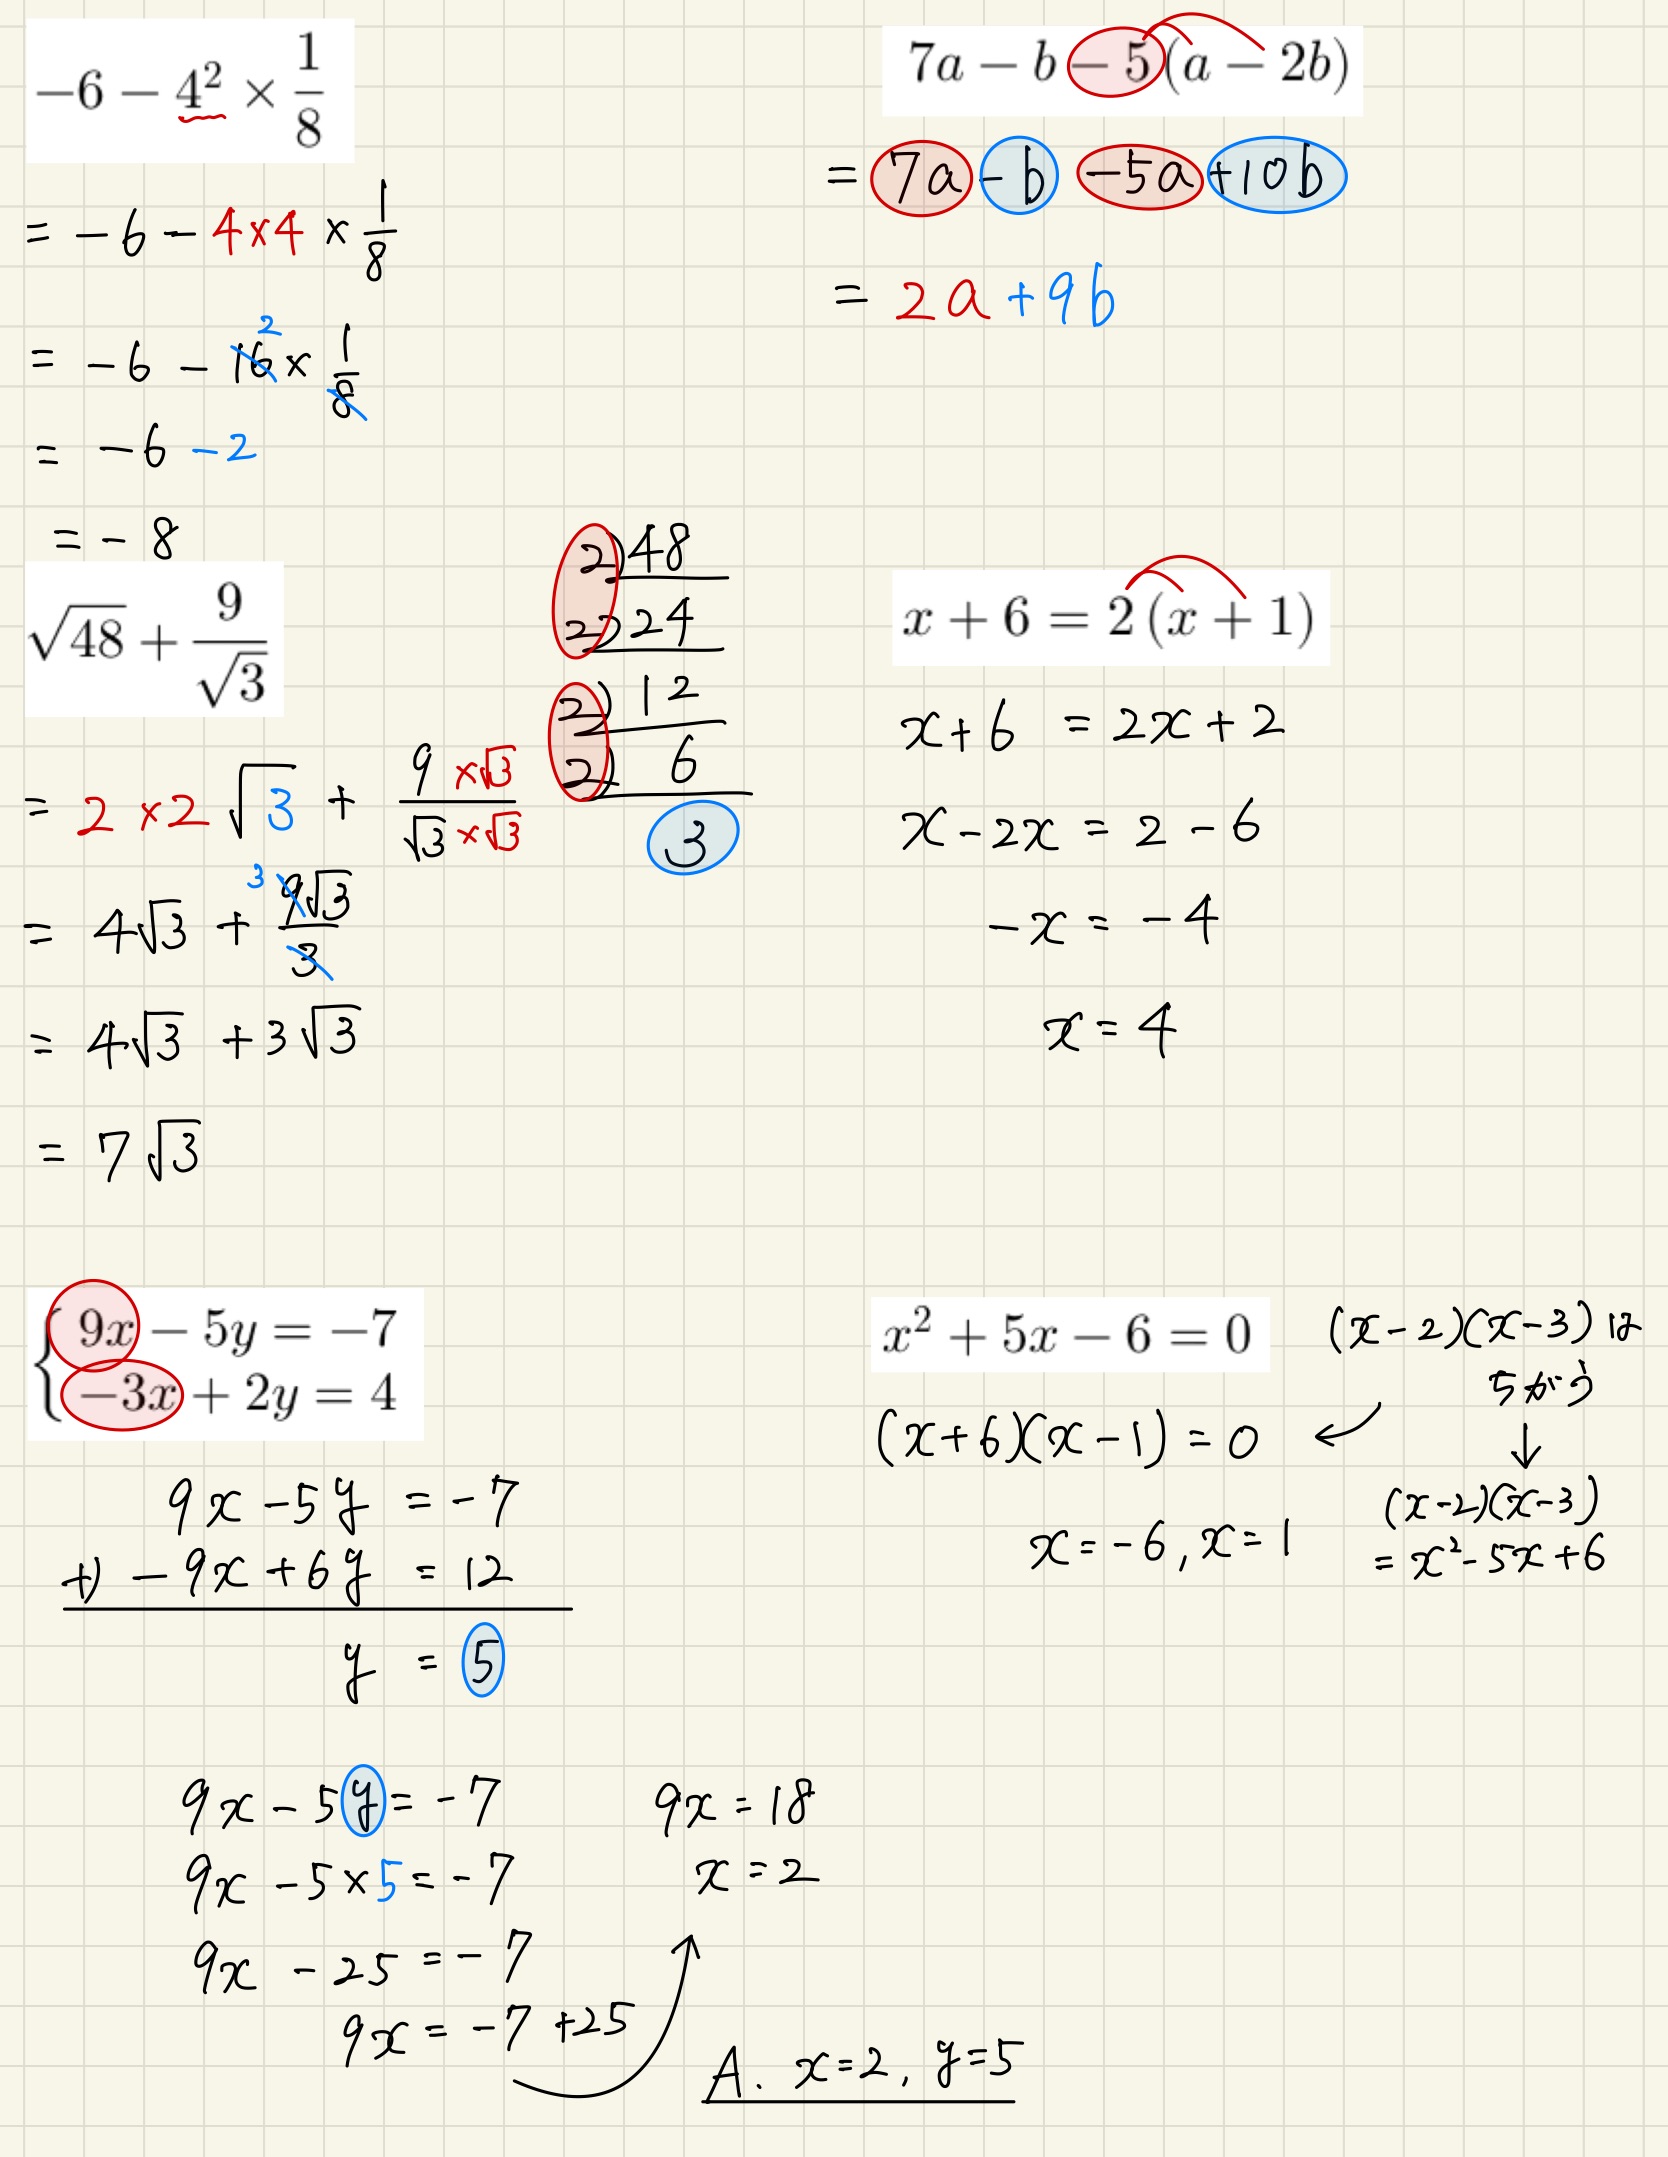 −6 − 4² × 1/8
= −6 − 4×4 × 1/8
2
= −6 − 16 × 1/8
= −6 −2
= − 8
7a − b − 5 (a − 2b)
= 7a − b −5a +10b
= 2a + 9b
√48 + 9/√3
2)48
2)24
2)12
2) 6
3
= 2 ×2 √3 + 9 ×√3/√3 ×√3
3
= 4√3 + 9√3/3
= 4√3 + 3√3
= 7√3
x + 6 = 2 (x + 1)
x+6 = 2x+2
x−2x = 2−6
−x = −4
x = 4
{ 9x − 5y = −7
−3x + 2y = 4
9x −5y = −7
+) −9x +6y = 12
y = 5
9x − 5y = −7
9x −5×5 = −7
9x −25 = −7
9x = −7 +25
9x = 18
x = 2
A. x=2, y=5
x² + 5x − 6 = 0
(x+6)(x−1) = 0
x=−6, x=1
(x−2)(x−3)は
ちがう
↓
(x−2)(x−3)
= x²−5x+6